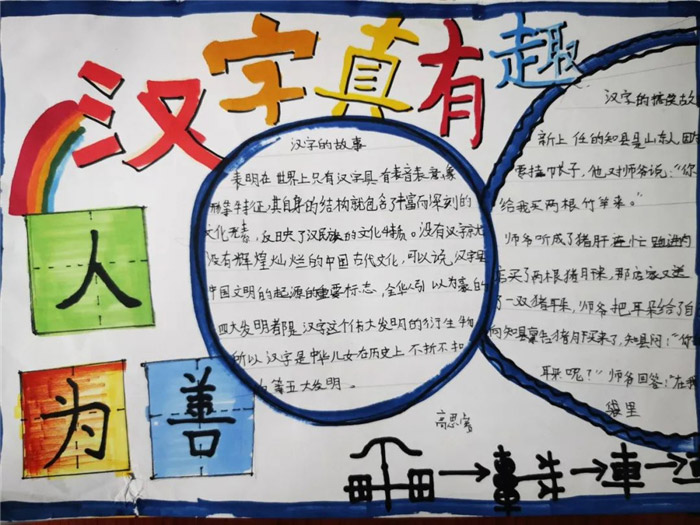 汉字真有趣
人
为善
汉字的故事
表明在世界上只有汉字具有表音表意象
形等特征,其自身的结构就包含了丰富而深刻的
文化元素,反映了汉民族的文化特质。没有汉字就
没有辉煌灿烂的中国古代文化,可以说,汉字是
中国文明的起源的重要标志,全华人引以为豪的
四大发明都是汉字这个伟大发明的衍生物
所以汉字是中华儿女在历史上不折不扣
第五大发明。
高思
汉字的搞笑故
新上任的知县是山东人因
要挂帐子,他对师爷说:“你
给我买两根竹竿来。”
师爷听成了猪肝连忙跑进肉
店买了两根猪肝,那店家又送
了一双猪耳朵,师爷把耳朵给了自
向知县禀告猪肝买来了,知县问:“你
耳朵呢?”师爷回答:“在我
袋里
車